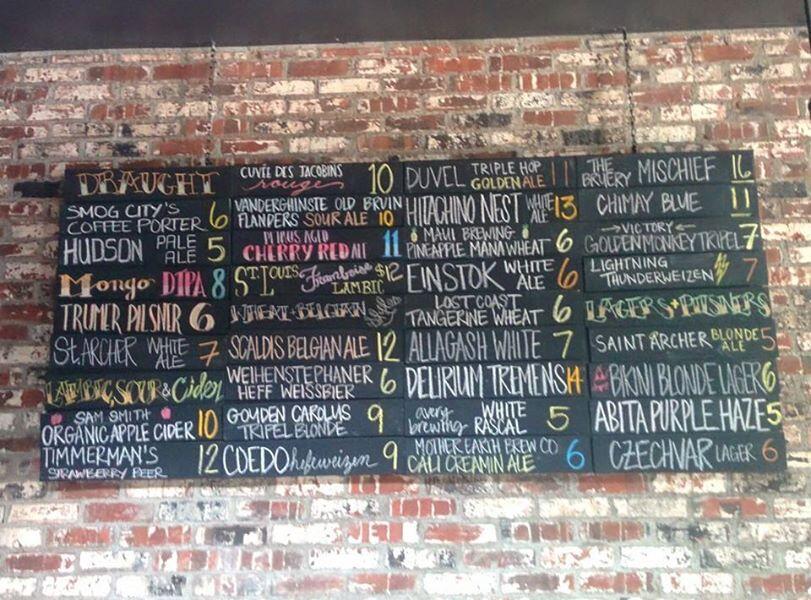 DRAUGHT
SMOG CITY'S
COFFEE PORTER 6
HUDSON PALE ALE 5
Mongo DIPA 8
TRUMER PILSNER 6
ST. ARCHER WHITE ALE 7
LAMBIC, SOUR & Cider
SAM SMITH
ORGANIC APPLE CIDER 10
TIMMERMAN'S 12
STRAWBERRY BEER
CUVÉE DES JACOBINS
rouge 10
VANDERGHINSTE OLD BRUIN
FLANDERS SOUR ALE 10
CHERRY RED 11
ST. LOUIS Framboise $12
LAMBIC
WHEAT BELGIAN
SCALDIS BELGIAN ALE 12
WEIHENSTEPHANER
HEFF WEISSBIER 6
GOUDEN CAROLUS
TRIPEL BLONDE 9
COEDO hefeweizen 9
DUVEL TRIPLE HOP
GOLDEN ALE 11
HITACHINO NEST WHITE ALE 13
MAUI BREWING
PINEAPPLE MANA WHEAT 6
EINSTOK WHITE ALE 6
LOST COAST
TANGERINE WHEAT 6
ALLAGASH WHITE 7
DELIRIUM TREMENS 14
avery brewing WHITE RASCAL 5
MOTHER EARTH BREW CO
CALI CREAMIN ALE 6
THE BRUERY MISCHIEF 16
CHIMAY BLUE 11
VICTORY
GOLDEN MONKEY TRIPEL 7
LIGHTNING
THUNDERWEIZEN 7
LAGERS + PILSNERS
SAINT ARCHER BLONDE ALE 5
BIKINI BLONDE LAGER 6
ABITA PURPLE HAZE 5
CZECHVAR LAGER 6